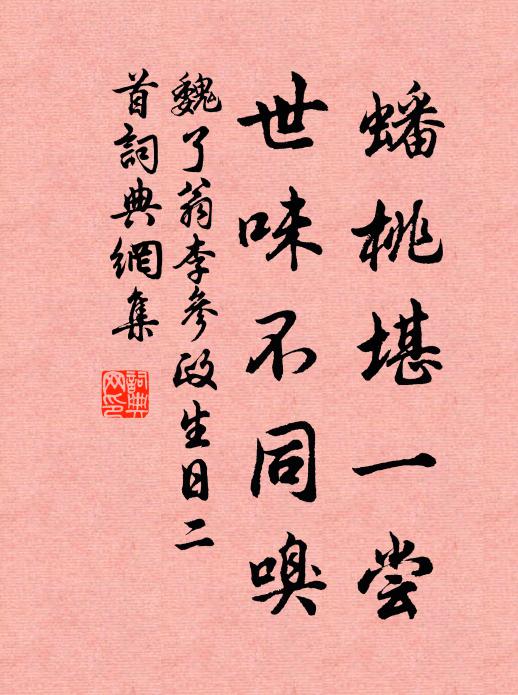 蟠桃堪一尝
世味不同嗅
魏了翁李参政生日二
首詞典網集
詞典网印